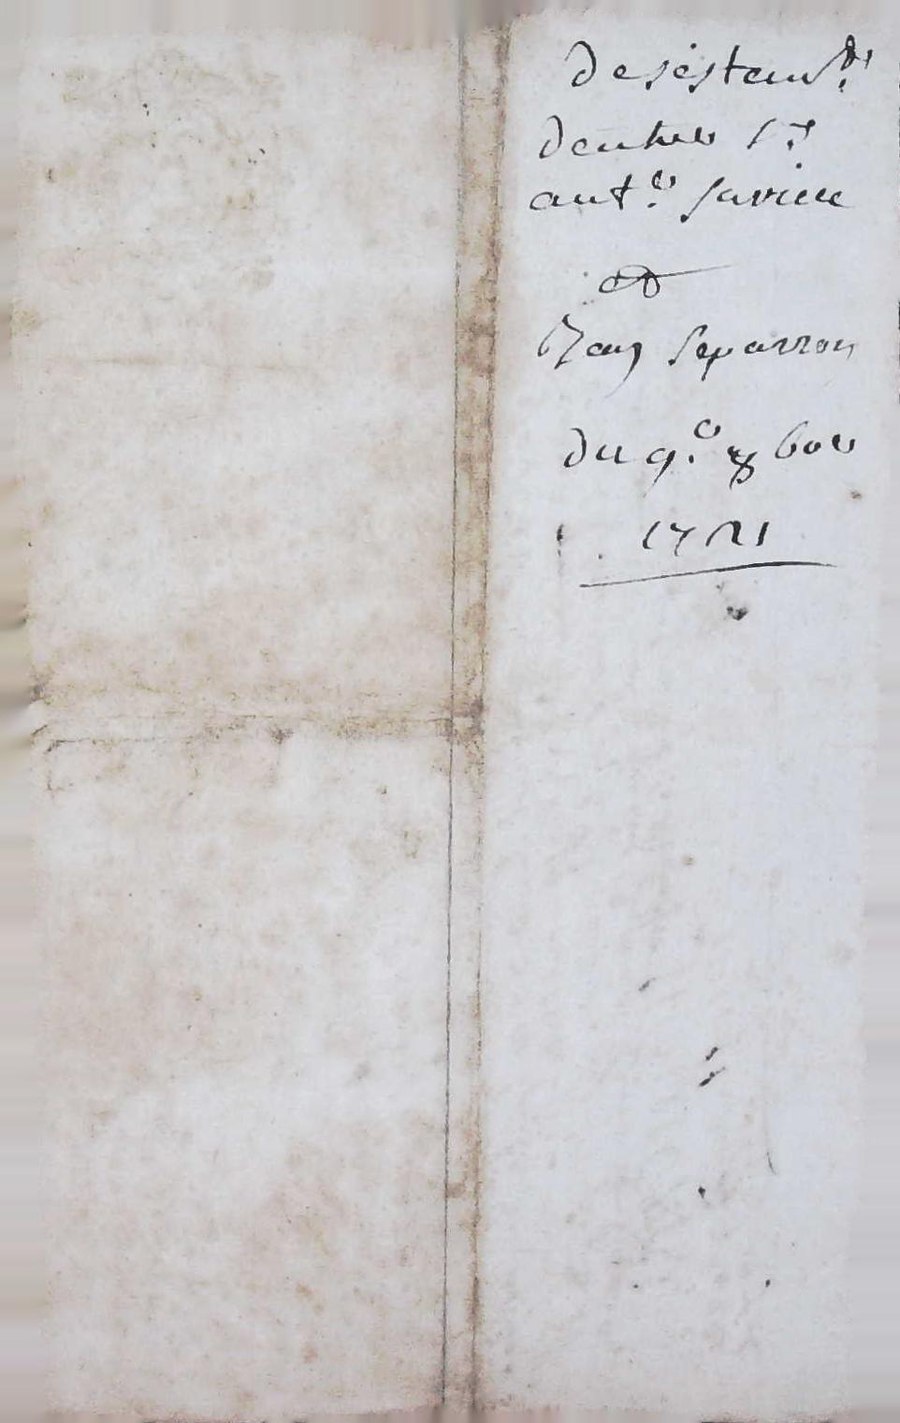 desistem.t
dentre s.r
ant.e savire
et
Jean separron
du 9.e xbre
1721